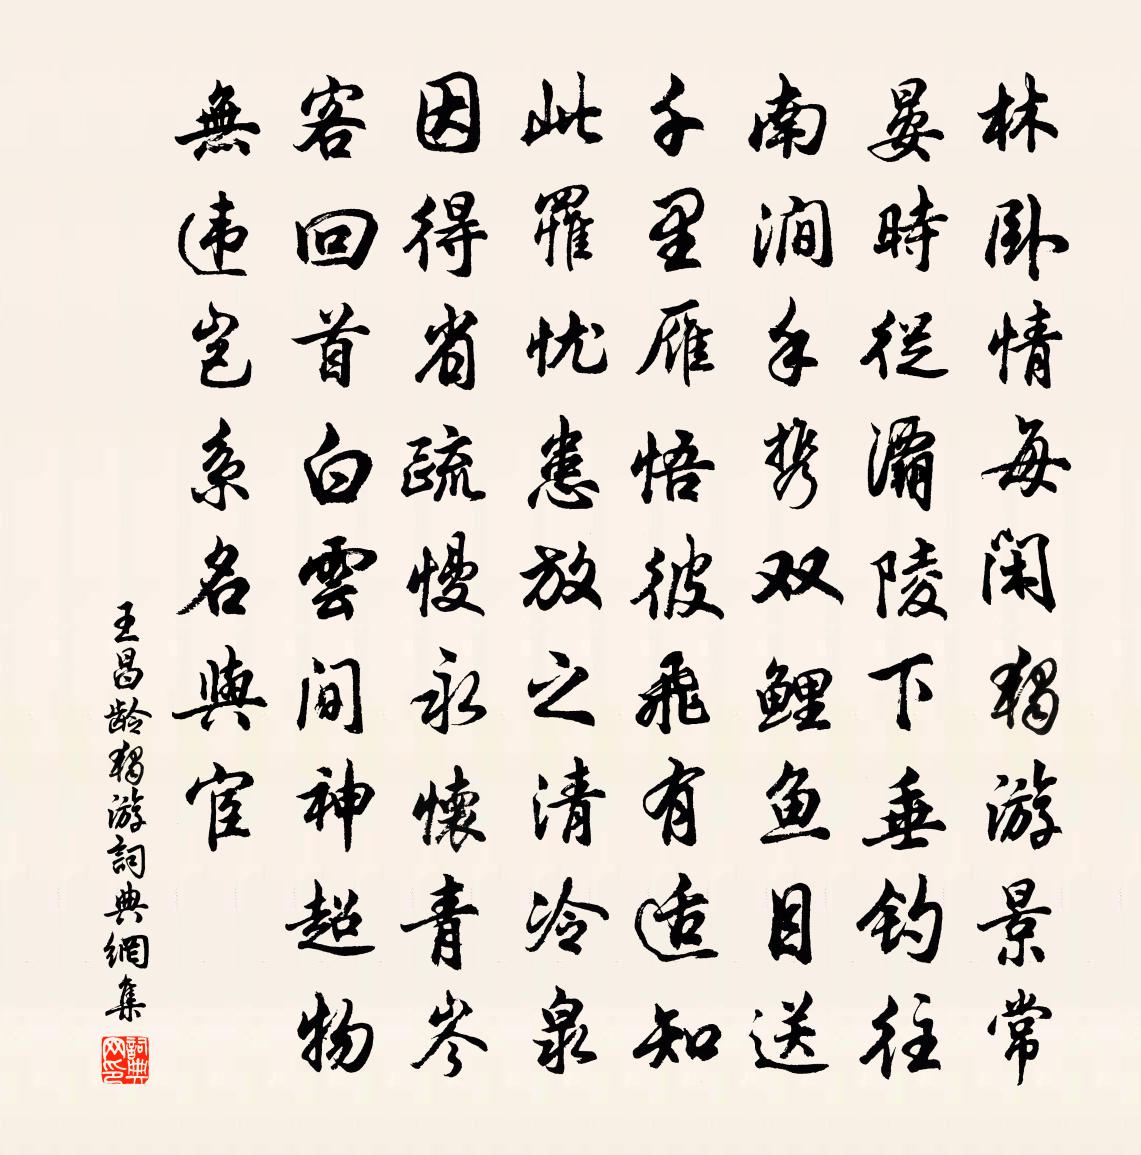 林卧情每闲獨游景常
晏時從灞陵下垂钓往
南涧手携双鲤鱼目送
千里雁悟彼飛有适知
此羅忧患放之清冷泉
因得省疏慢永懷青岑
客回首白雲间神超物
無违岂系名與宦
王昌龄獨游詞典網集
詞典网印